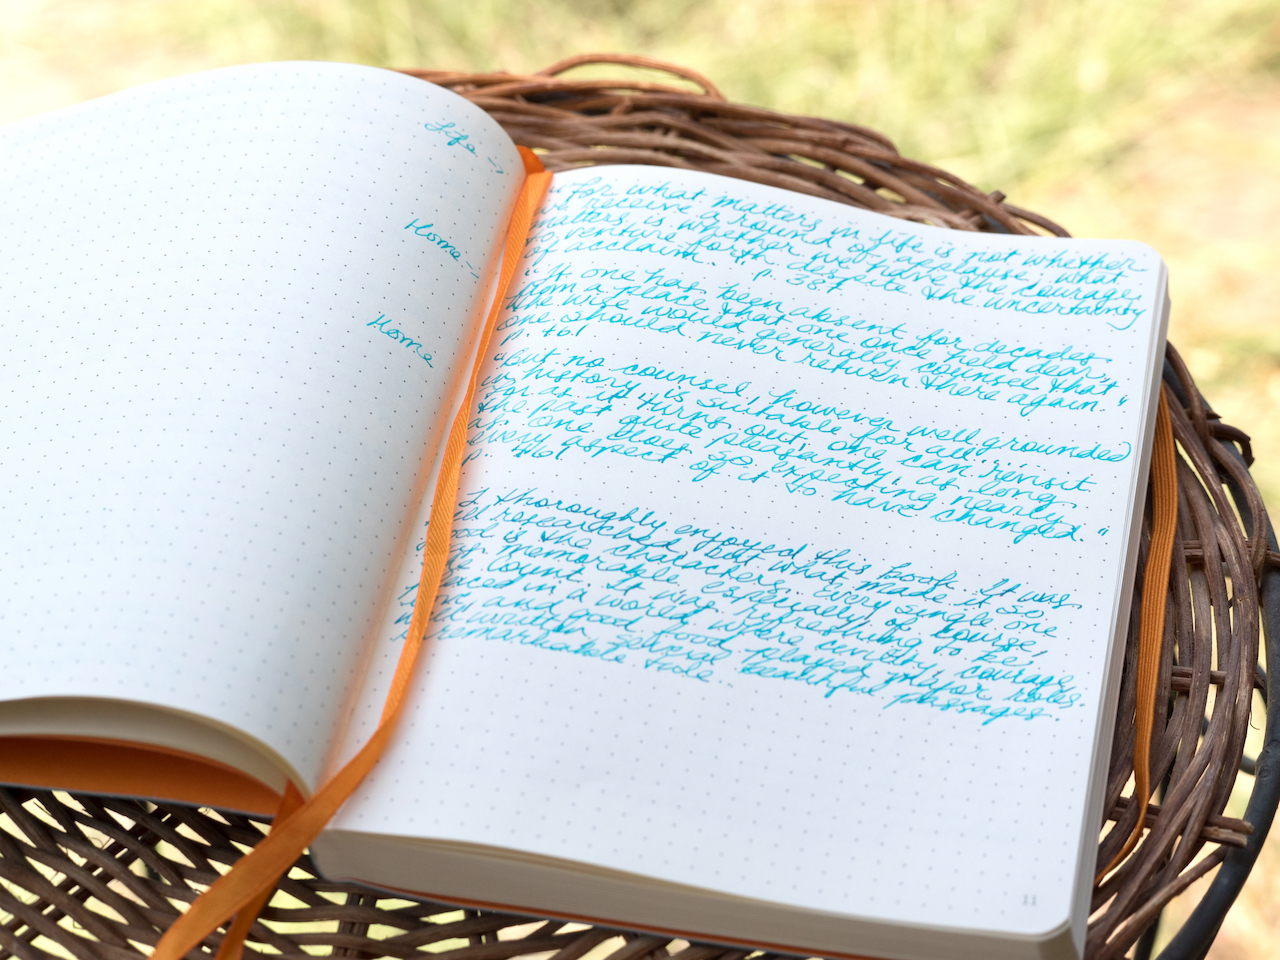 Life -
Home -
Home
"For what matters in life is not whether
we receive a round of applause; what
matters is whether we have the courage
to venture forth despite the uncertainty
of acclaim." p. 387
"If one has been absent for decades
from a place that one once held dear,
the wise would generally counsel that
one should never return there again."
p. 461
"But no counsel, however well grounded
in history, is suitable for all.
For as it turns out, one can revisit
the past quite pleasantly, as long
as one does so expecting nearly
every aspect of it to have changed."
p. 461
I thoroughly enjoyed this book. It was
well researched but what made it so
good is the characters. Every single one
memorable, especially of course,
the Count. It was refreshing to be
placed in a world where civility, courage,
and good food played major roles.
written several beautiful passages.
remarkable tale.
11